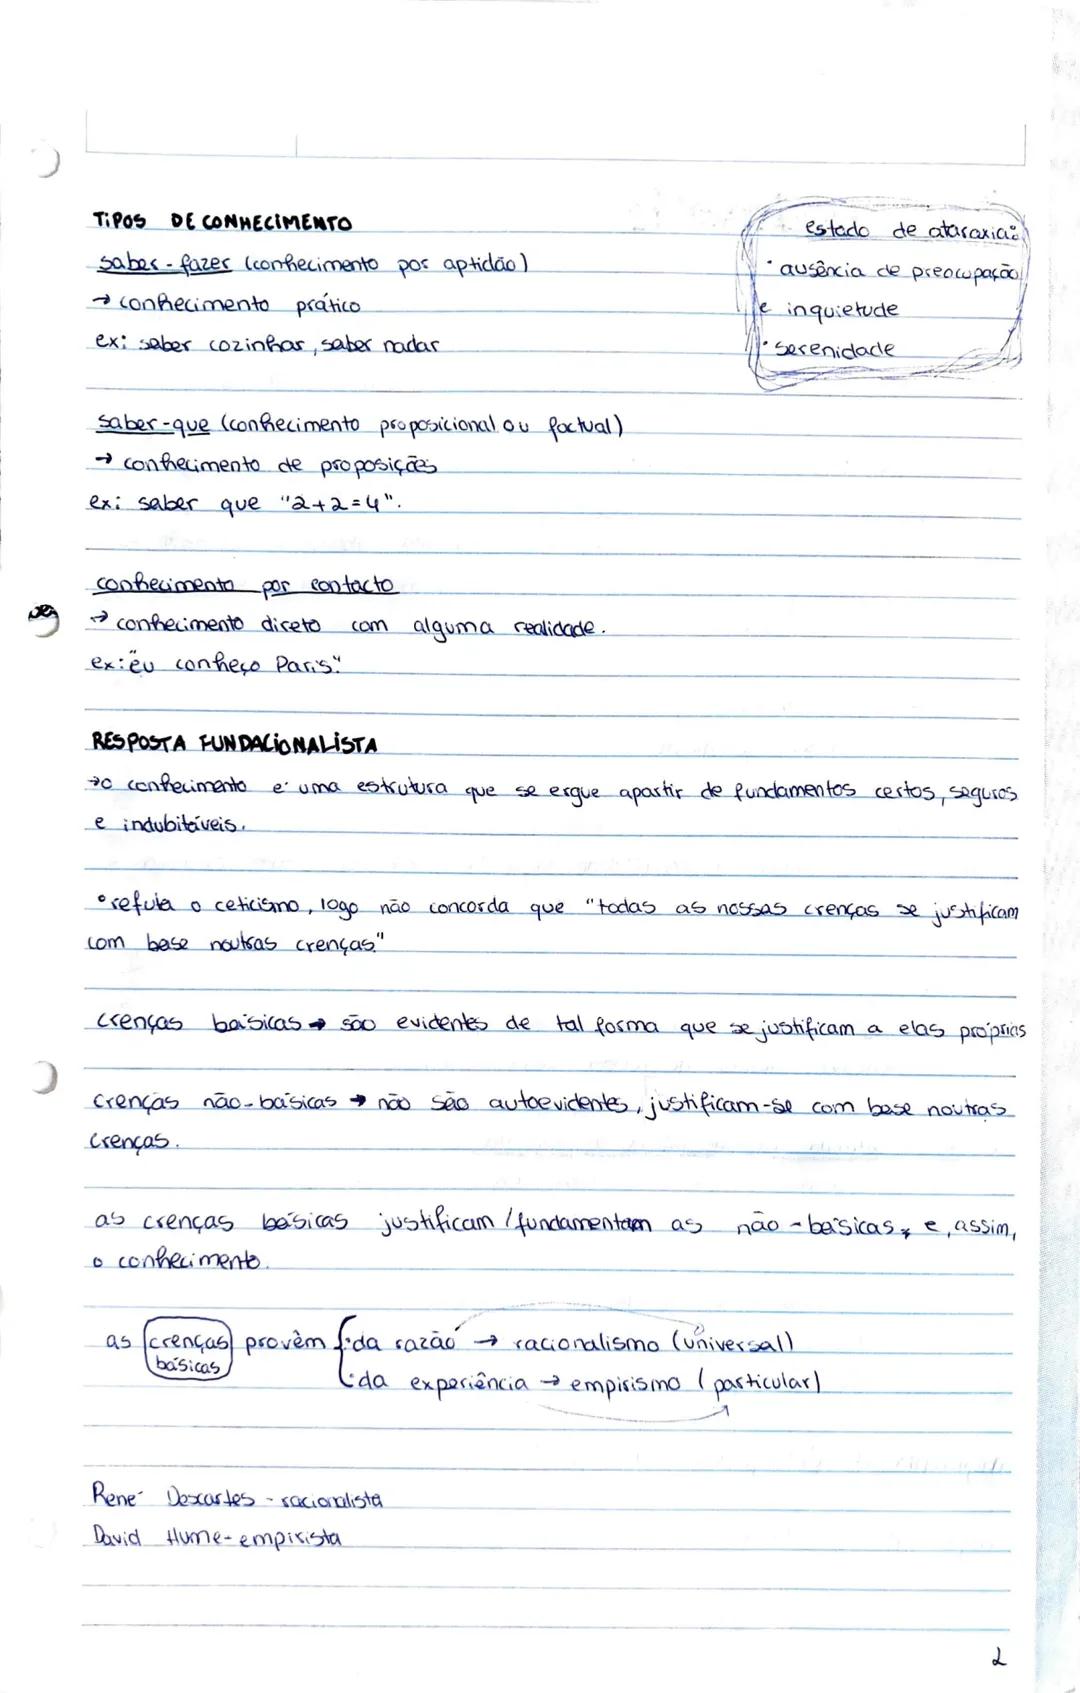 TIPOS DE CONHECIMENTO
saber-fazer (conhecimento por aptidão)
→ conhecimento prático
ex: saber cozinhar, saber nadar
estado de ataraxia:
• ausência de preocupação
e inquietude
• serenidade
saber-que (conhecimento proposicional ou factual)
→ conhecimento de proposições
ex: saber que "2+2=4".
conhecimento por contacto
→ conhecimento direto com alguma realidade.
ex: "eu conheço Paris"
RESPOSTA FUNDACIONALISTA
→ o conhecimento é uma estrutura que se ergue apartir de fundamentos certos, seguros
e indubitáveis.
° refuta o ceticismo, logo não concorda que "todas as nossas crenças se justificam
com base noutras crenças"
crenças básicas → são evidentes de tal forma que se justificam a elas próprias
crenças não-básicas → não são autoevidentes, justificam-se com base noutras
crenças.
as crenças básicas justificam/fundamentam as não-básicas, e, assim,
o conhecimento.
as crenças básicas provêm • da razão → racionalismo (universal)
• da experiência → empirismo (particular)
René Descartes - racionalista
David Hume - empirista
2